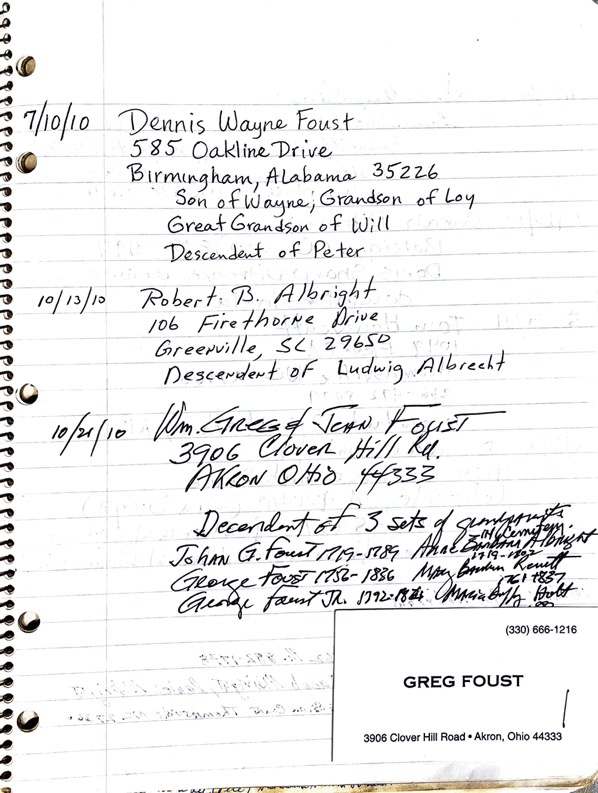 7/10/10 Dennis Wayne Foust
585 Oakline Drive
Birmingham, Alabama 35226
Son of Wayne; Grandson of Loy
Great Grandson of Will
Descendent of Peter
10/13/10 Robert B. Albright
106 Firethorne Drive
Greenville, SC 29650
Descendent of Ludwig Albrecht
10/21/10 Wm. Greg & Jean Foust
3906 Clover Hill Rd.
Akron Ohio 44333
Decendent of 3 sets of grandparents
in Cemetery.
Johan G. Foust 1719-1789 Anne Barbara Albright
1719-1802
George Foust 1756-1836 Mary
1761-1837
George Foust Jr. Holt
(330) 666-1216
GREG FOUST
3906 Clover Hill Road • Akron, Ohio 44333